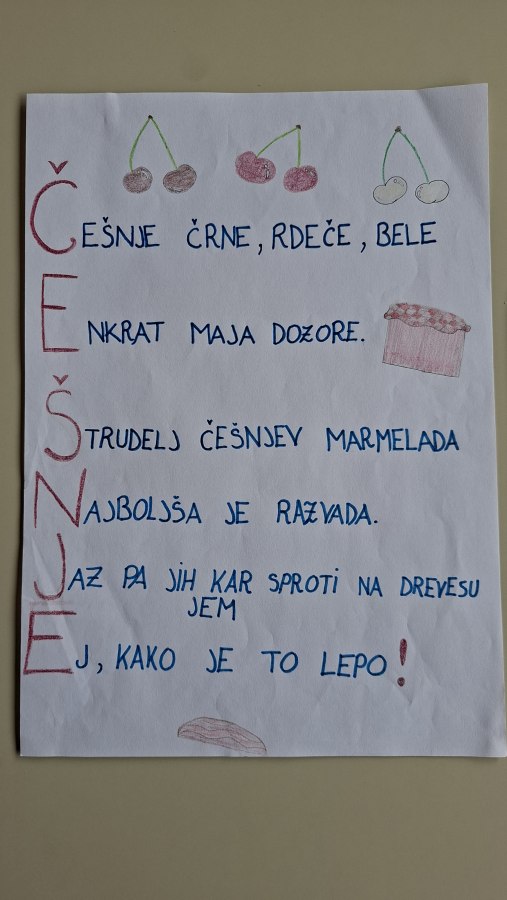 ČEŠNJE ČRNE, RDEČE, BELE
ENKRAT MAJA DOZORE.
ŠTRUDELJ ČEŠNJEV MARMELADA
NAJBOLJŠA JE RAZVADA.
JAZ PA JIH KAR SPROTI NA DREVESU
JEM
EJ, KAKO JE TO LEPO!